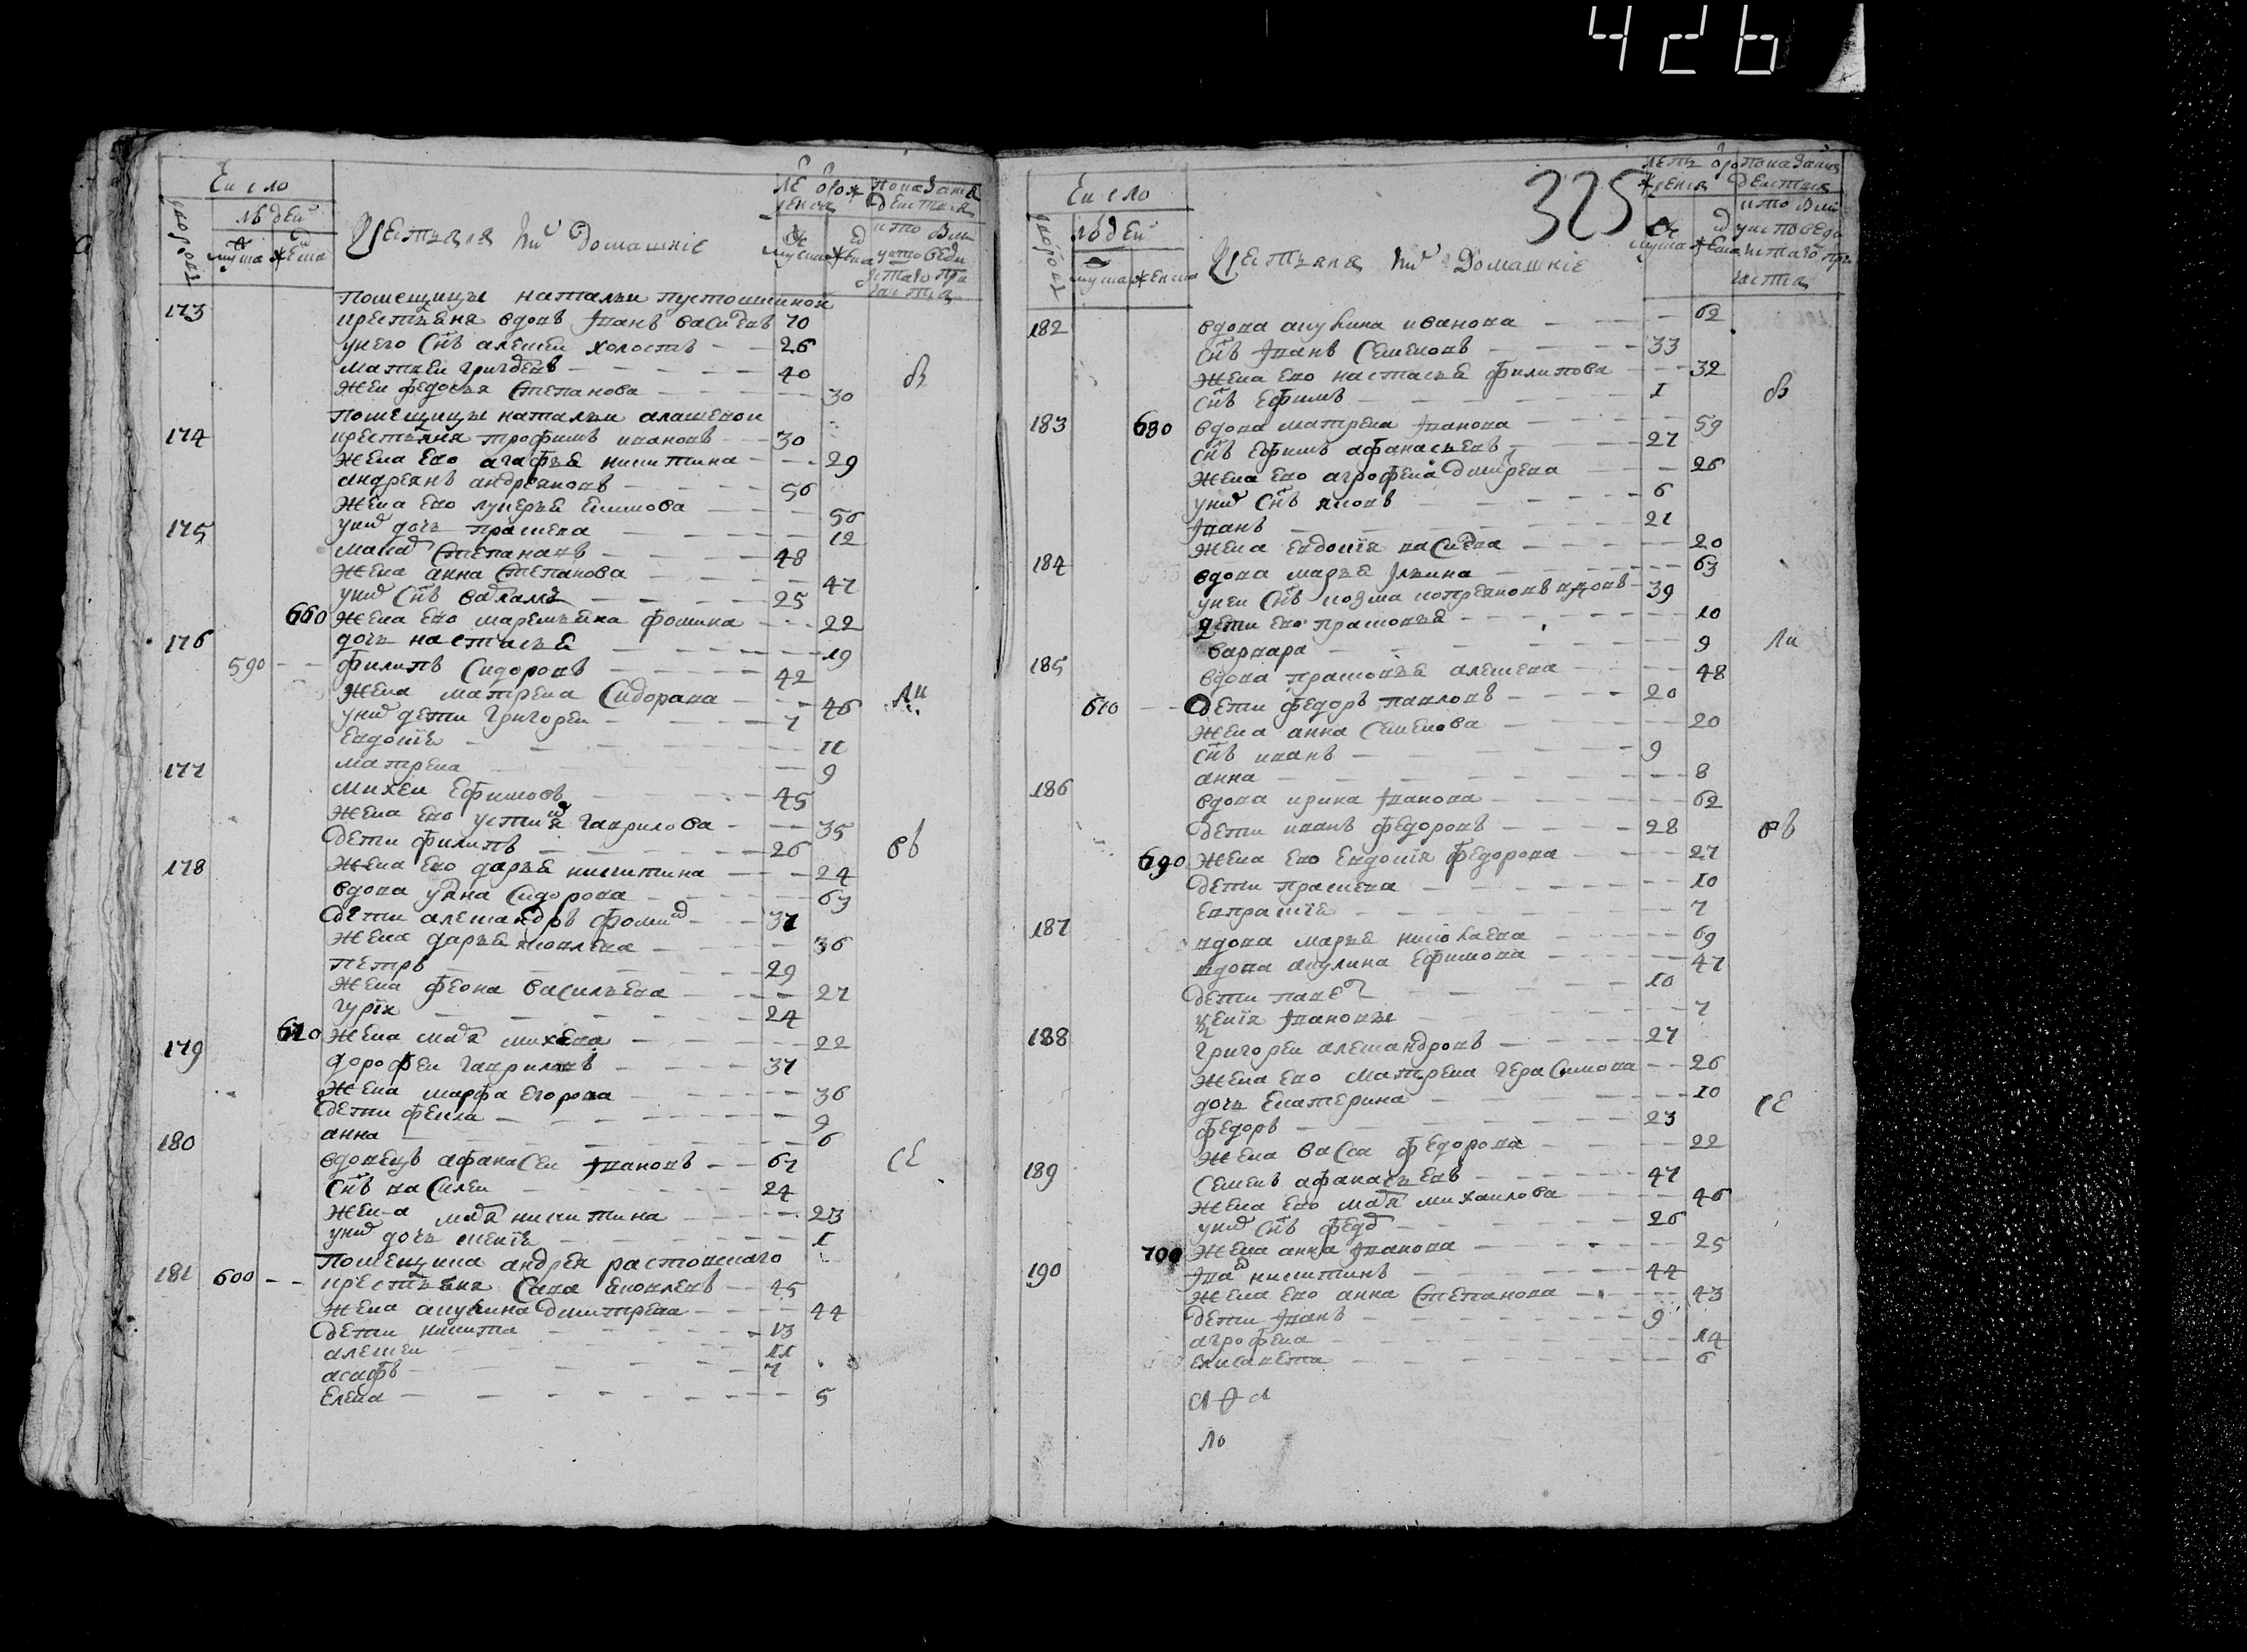 426
Число
дворовъ
людей
мужа жена
Крестьяня и их домашние
помещицы натальи пустошкинои
173
крестьяня вдовъ Іванъ василевъ 70
у него снъ алексеи холостъ 26
матвеи григоревъ 40
жен федосья степанова 30
помещицы натальи алашевои
174
крестьяня трофимъ ивановъ 30
жена ево агафья никитина 29
андреянъ андреяновъ 56
жена ево лукерья екимова 56
175
у них дочь прасковя 12
степановъ 48
жена анна степанова 47
у них снъ 25
660 жена ево маремьяна фомина 22
176
дочь настасья 19
590 филипъ сидоровъ 42
жена матрена сидорава 46
у них дети григореи 7
евдокія 11
177
матрена 9
михеи ефимовъ 45
жена ево гаврилова 35
дети филипъ 26
178
жена ево дарья никитина 24
вдова уляна сидорова 63
дети александръ фомин 37
жена дарья яковлева 36
петръ 29
жена феона васильева 27
гурія 24
670 жена михеева 22
179
дорофеи гавриловъ 37
жена марфа егорова 36
дети фекла 9
анна 6
180
вдовецъ афанасеи Івановъ 67
снъ василеи 24
жена никитина 23
у них дочь 1
помещика андрея растопскаго
181 600
крестьяня сава яковлевъ 45
жена акулина дмитрева 44
дети никита 13
алексеи 11
асафъ 7
елена 5
325
Число
дворовъ
людей
мужа женска
Крестьяня и их домашніе
182
вдова акулина иванова 62
снъ Іванъ семеновъ 33
жена ево настасья филипова 32
снъ ефимъ 1
183 680
вдова матрена Іванова 59
снъ ефимъ афанасьевъ 27
жена ево агрофена дмитрева 26
у них снъ яковъ 6
Іванъ 21
жена евдокія василева 20
184
вдова марья Ільина 63
у неи снъ козма вдовъ 39
дети ево прасковья 10
варвара 9
185
вдова прасковья алексева 48
610 дети федоръ павловъ 20
жена анна семенова 20
снъ иванъ 9
анна 8
186
вдова ирина Іванова 62
дети иванъ федоровъ 28
690 жена ево евдокія федорова 27
дети прасковя 10
евпраксія 7
187
вдова марья николаева 69
вдова акулина ефимова 47
дети павел 10
Івановы 7
188
григореи александровъ 27
жена ево матрена герасимова 26
дочь екатерина 10
федоръ 23
жена васса федорова 22
189
семенъ афанасьевъ 47
жена ево михаилова 46
у них снъ федо 26
700 жена анна Іванова 25
190
Іван никитинъ 44
жена ево анна степанова 43
дети Іванъ 9
агрофена 14
елисавета 6